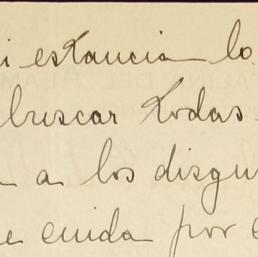 i estancia lo
buscar todas
a los disgu
e cuida por